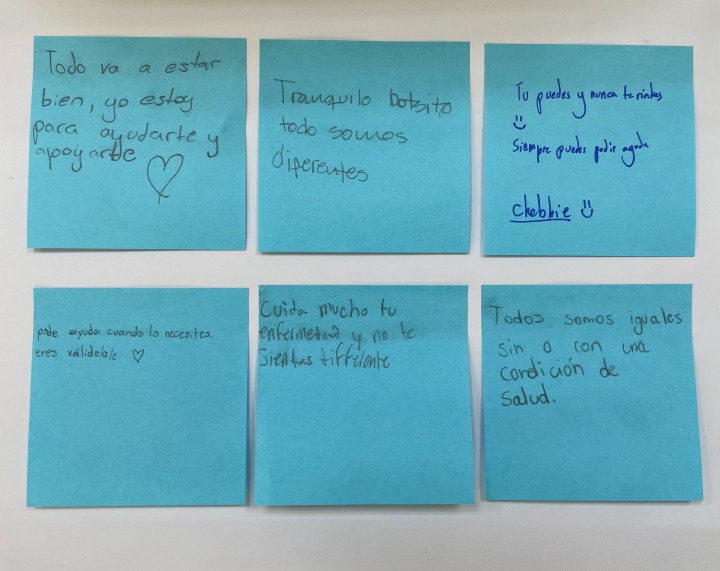 Todo va a estar
bien, yo estoy
para ayudarte y
apoyarte
Tranquilo botsito
todo somos
diferentes
Tu puedes y nunca te rindas
Siempre puedes pedir ayuda
Chebbie
pide ayuda cuando lo necesites.
eres válido/a/e
Cuida mucho tu
enfermedad y no te
sientas tifferente
Todos somos iguales
sin o con una
condición de
salud.